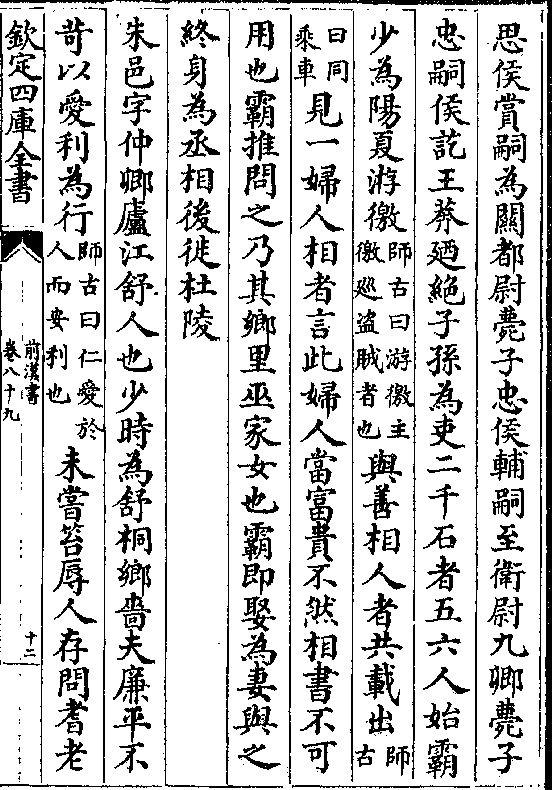 思侯賞嗣為關都尉薨子忠侯輔嗣至衛尉九卿薨子
忠嗣侯訖王莽廼絶子孫為吏二千石者五六人始霸
少為陽夏游徼師古曰游徼主徼巡盗賊者也與善相人者共載出師古
曰同乘車見一婦人相者言此婦人當富貴不然相書不可
用也霸推問之乃其鄉里巫家女也霸即娶為妻與之
終身為丞相後徙杜陵
朱邑字仲卿廬江舒人也少時為舒桐鄉嗇夫廉平不
苛以愛利為行師古曰仁愛於人而安利也未嘗笞辱人存問耆老
欽定四庫全書
前漢書
卷八十九
十二